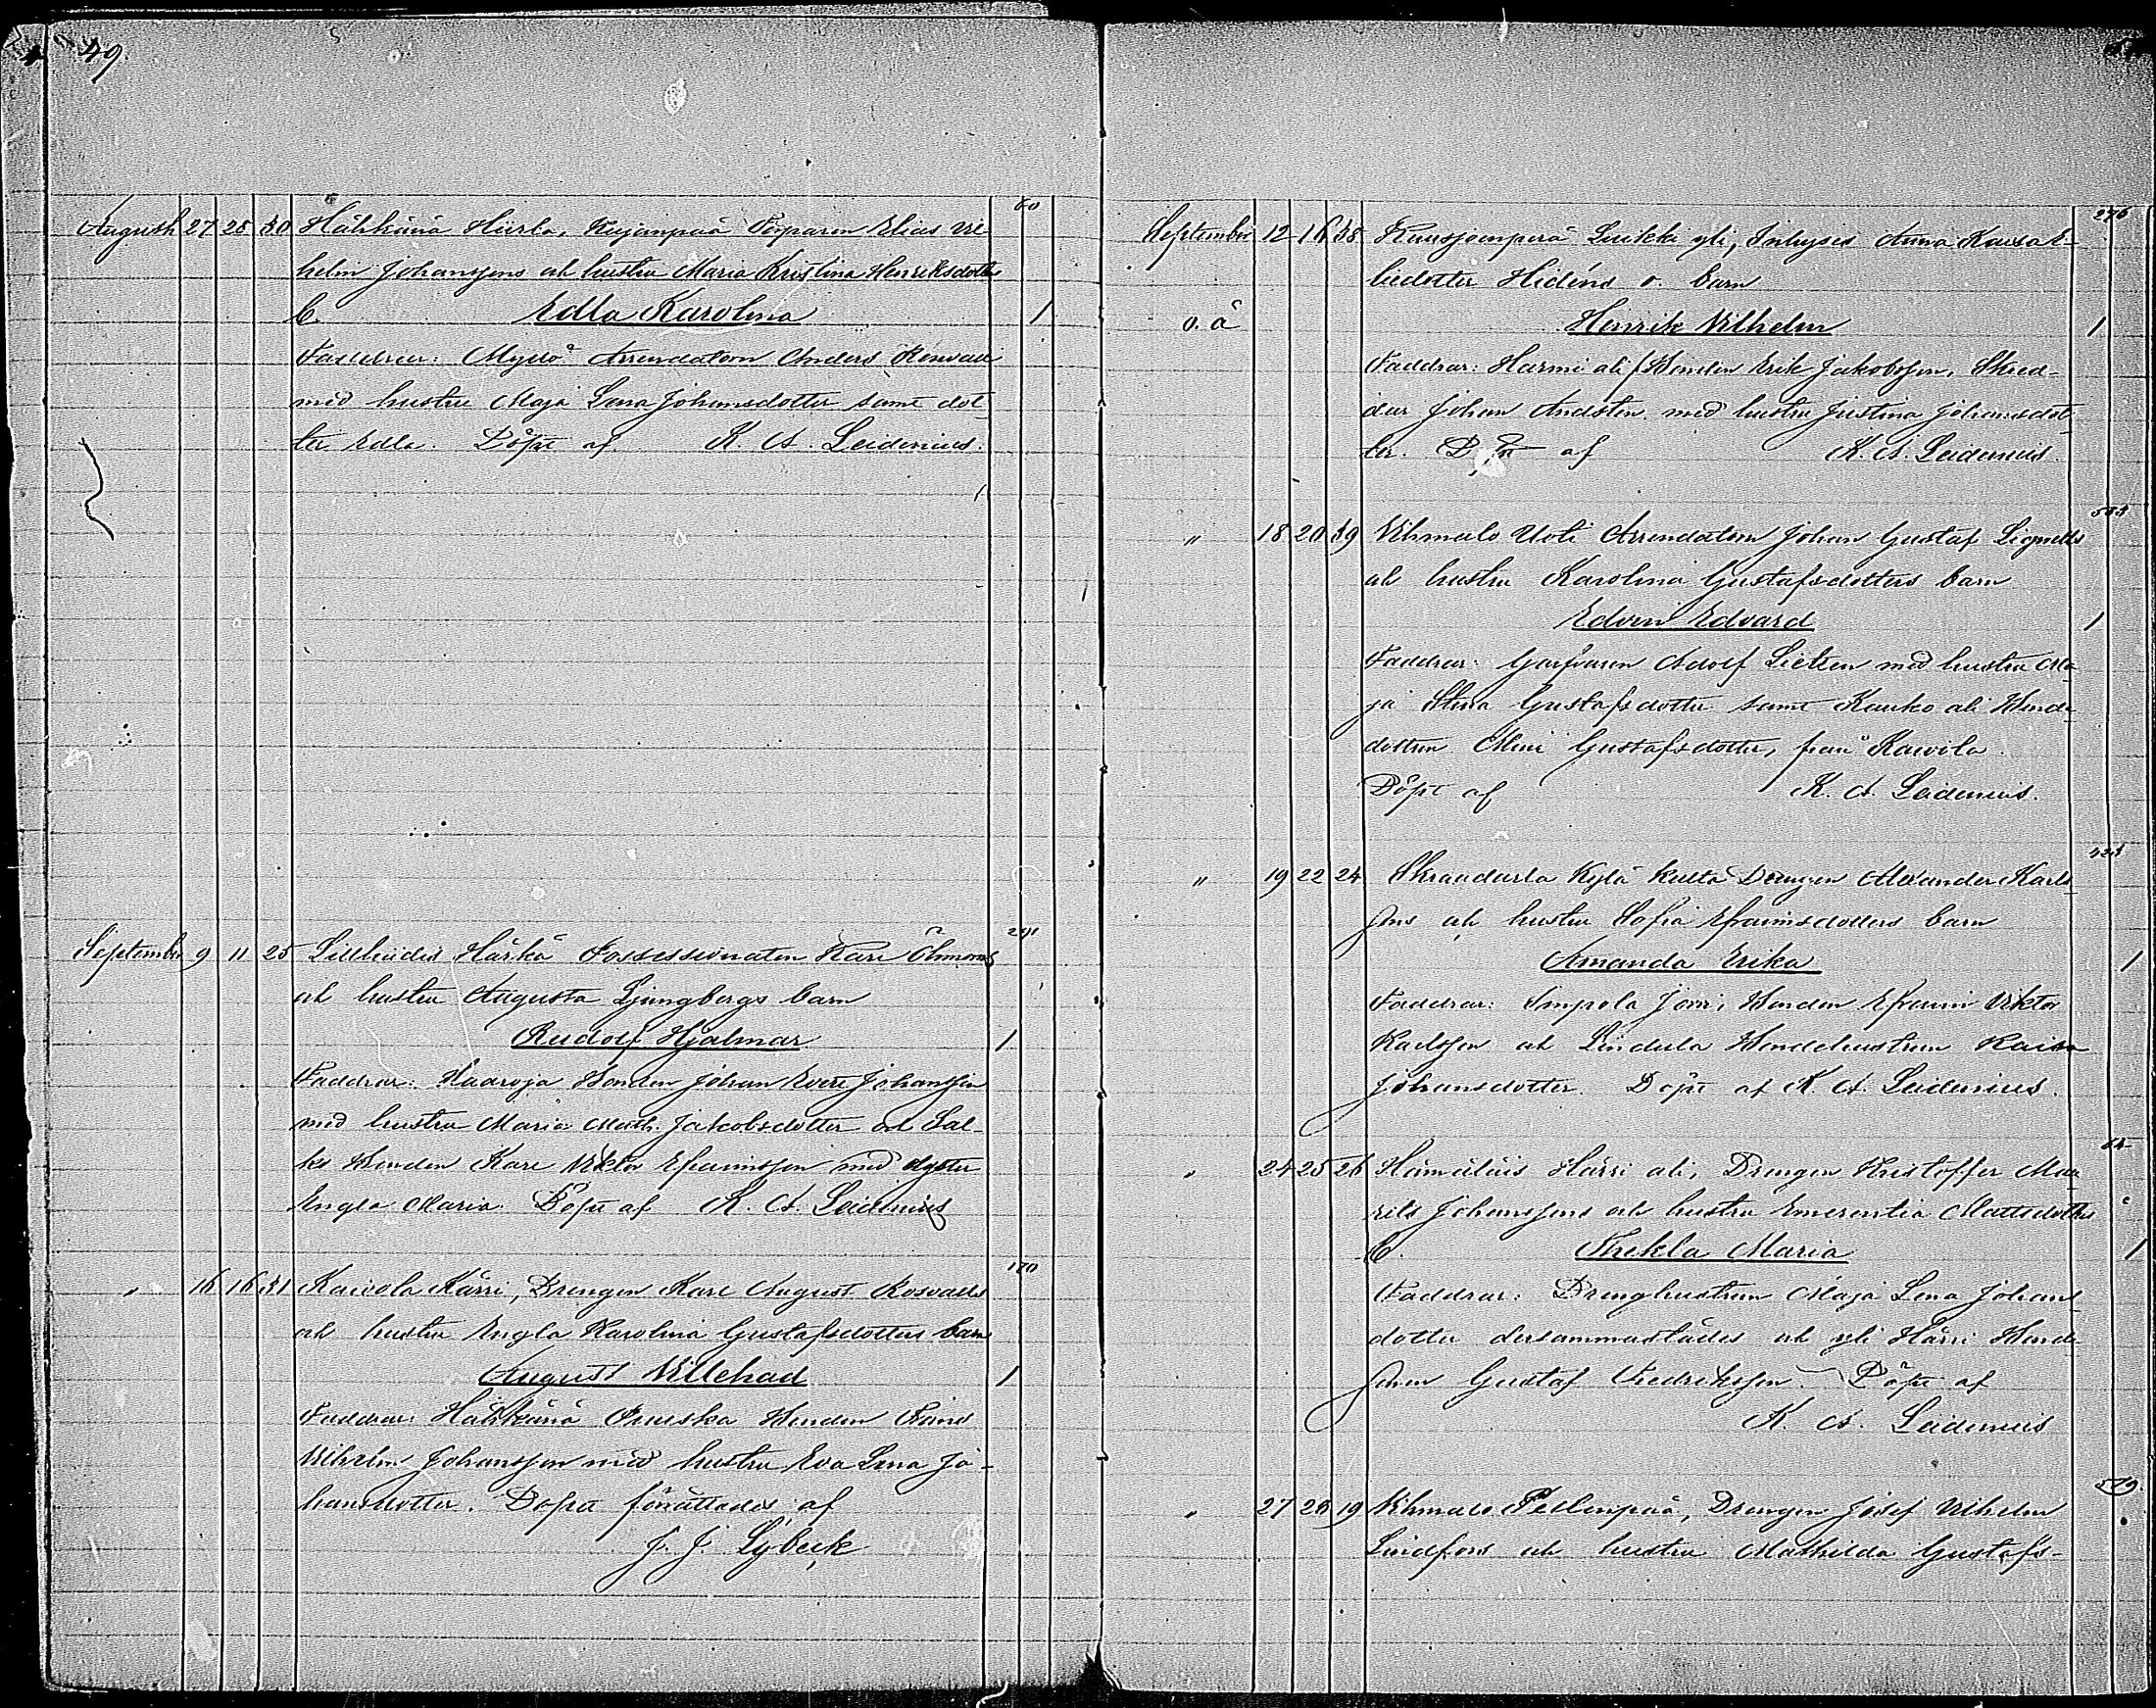 49.
80
August 27 28 30 Hähkänä Hiirla, Kujanpää Torparen Elias Vil-
helm Johanssons och hustru Maria Kristina Henriksdotters
b. Edla Karolina 1
Faddrar: Myllö Arrendatorn Anders Rosvall
med hustru Maja Lena Johansdotter samt dot-
ter Edla. Döpt af K. A. Leidenius.
291
September 9 11 25 Lillhiidis Härkä Possessionaten Karl Öhmans
och hustru Augusta Ljungbergs barn
Rudolf Hjalmar 1
Faddrar: Haaroja Bonden Johan Evert Johansson
med hustru Maria Math. Jakobsdotter och Sal-
ko Bonden Karl Viktor Efraimsson med dotter
Engla Maria. Döpt af K. A. Leidenius
170
" 16 16 31 Kaivola Kärri, Drengen Karl August Rosvalls
och hustru Engla Karolina Gustafsdotters barn
August Villehad 1
Faddrar: Hähkänä Bonden Frans
Vilhelm Johansson med hustru Eva Lena Jo-
hansdotter. Döpet förrättades af
J. J. Lybeck
276
September 12 16 38 Kuusjoenperä Luikki yli, Inhyses Anna Kaisa E-
liedotter Hidéns o. barn
o. ä Henrik Vilhelm 1
Faddrar: Harmi ali Bonden Erik Jakobsson, Skred-
dar Johan Andsten med hustru Justina Johansdot-
ter. Döpt af K. A. Leidenius.
" 18 20 39 Vihmalo Uoti Arrendatorn Johan Gustaf Lignells
och hustru Karolina Gustafsdotters barn
Edvin Edvard 1
Faddrar: Garfvaren Adolf Lietzen med hustru Ma-
ja Stina Gustafsdotter samt Kauko ali Bond-
dottren Mina Gustafsdotter, från Kaivola.
Döpt af K. A. Leidenius.
" 19 22 24 Skraudurla Kylä kulta Drengen Alexander Karls-
sons och hustru Sofia Efraimsdotters barn
Amanda Erika 1
Faddrar: Simpola Jorri, Bonden Efraim Viktor
Karlsson och Lindula Bondehustrun Kaisa
Johansdotter. Döpt af K. A. Leidenius.
" 24 25 26 Hämäläis Härri ali, Drengen Kristoffer Mau-
rits Johanssons och hustru Emerentia Mattsdotters
b. Thekla Maria 1
Faddrar: Drenghustrun Maja Lena Johans-
dotter dersammastädes och yli Härri Bond-
sonen Gustaf Fredriksson. Döpt af
K. A. Leidenius
" 27 28 19 Vihmalo Pellonpää, Drengen Josef Vilhelm
Lindfors och hustru Mathilda Gustafs-